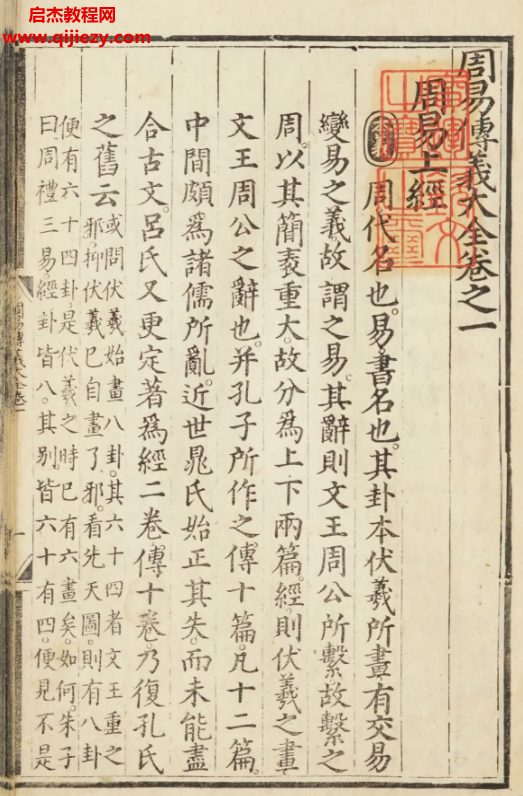 启杰教程网
www.qijiezy.com
周易傳義大全卷之一
周易上經
周代名也。易書名也。其卦本伏羲所畫有交易
變易之義。故謂之易。其辭則文王周公所繫。故繫之
周。以其簡袠重大。故分爲上下兩篇。經則伏羲之畫
文王周公之辭也。并孔子所作之傳十篇。凡十二篇。
中間頗爲諸儒所亂。近世晁氏始正其失。而未能盡
合古文。呂氏又更定著爲經二卷傳十卷。乃復孔氏
之舊云
或問伏羲始畫八卦。其六十四者文王重之
邪。抑伏羲已自畫了邪。看先天圖。則有八卦
便有六十四卦是伏羲之時已有六畫矣。如何。朱子
曰周禮三易。經卦皆八。其別皆六十有四。便見不是
周易傳義大全卷一
一